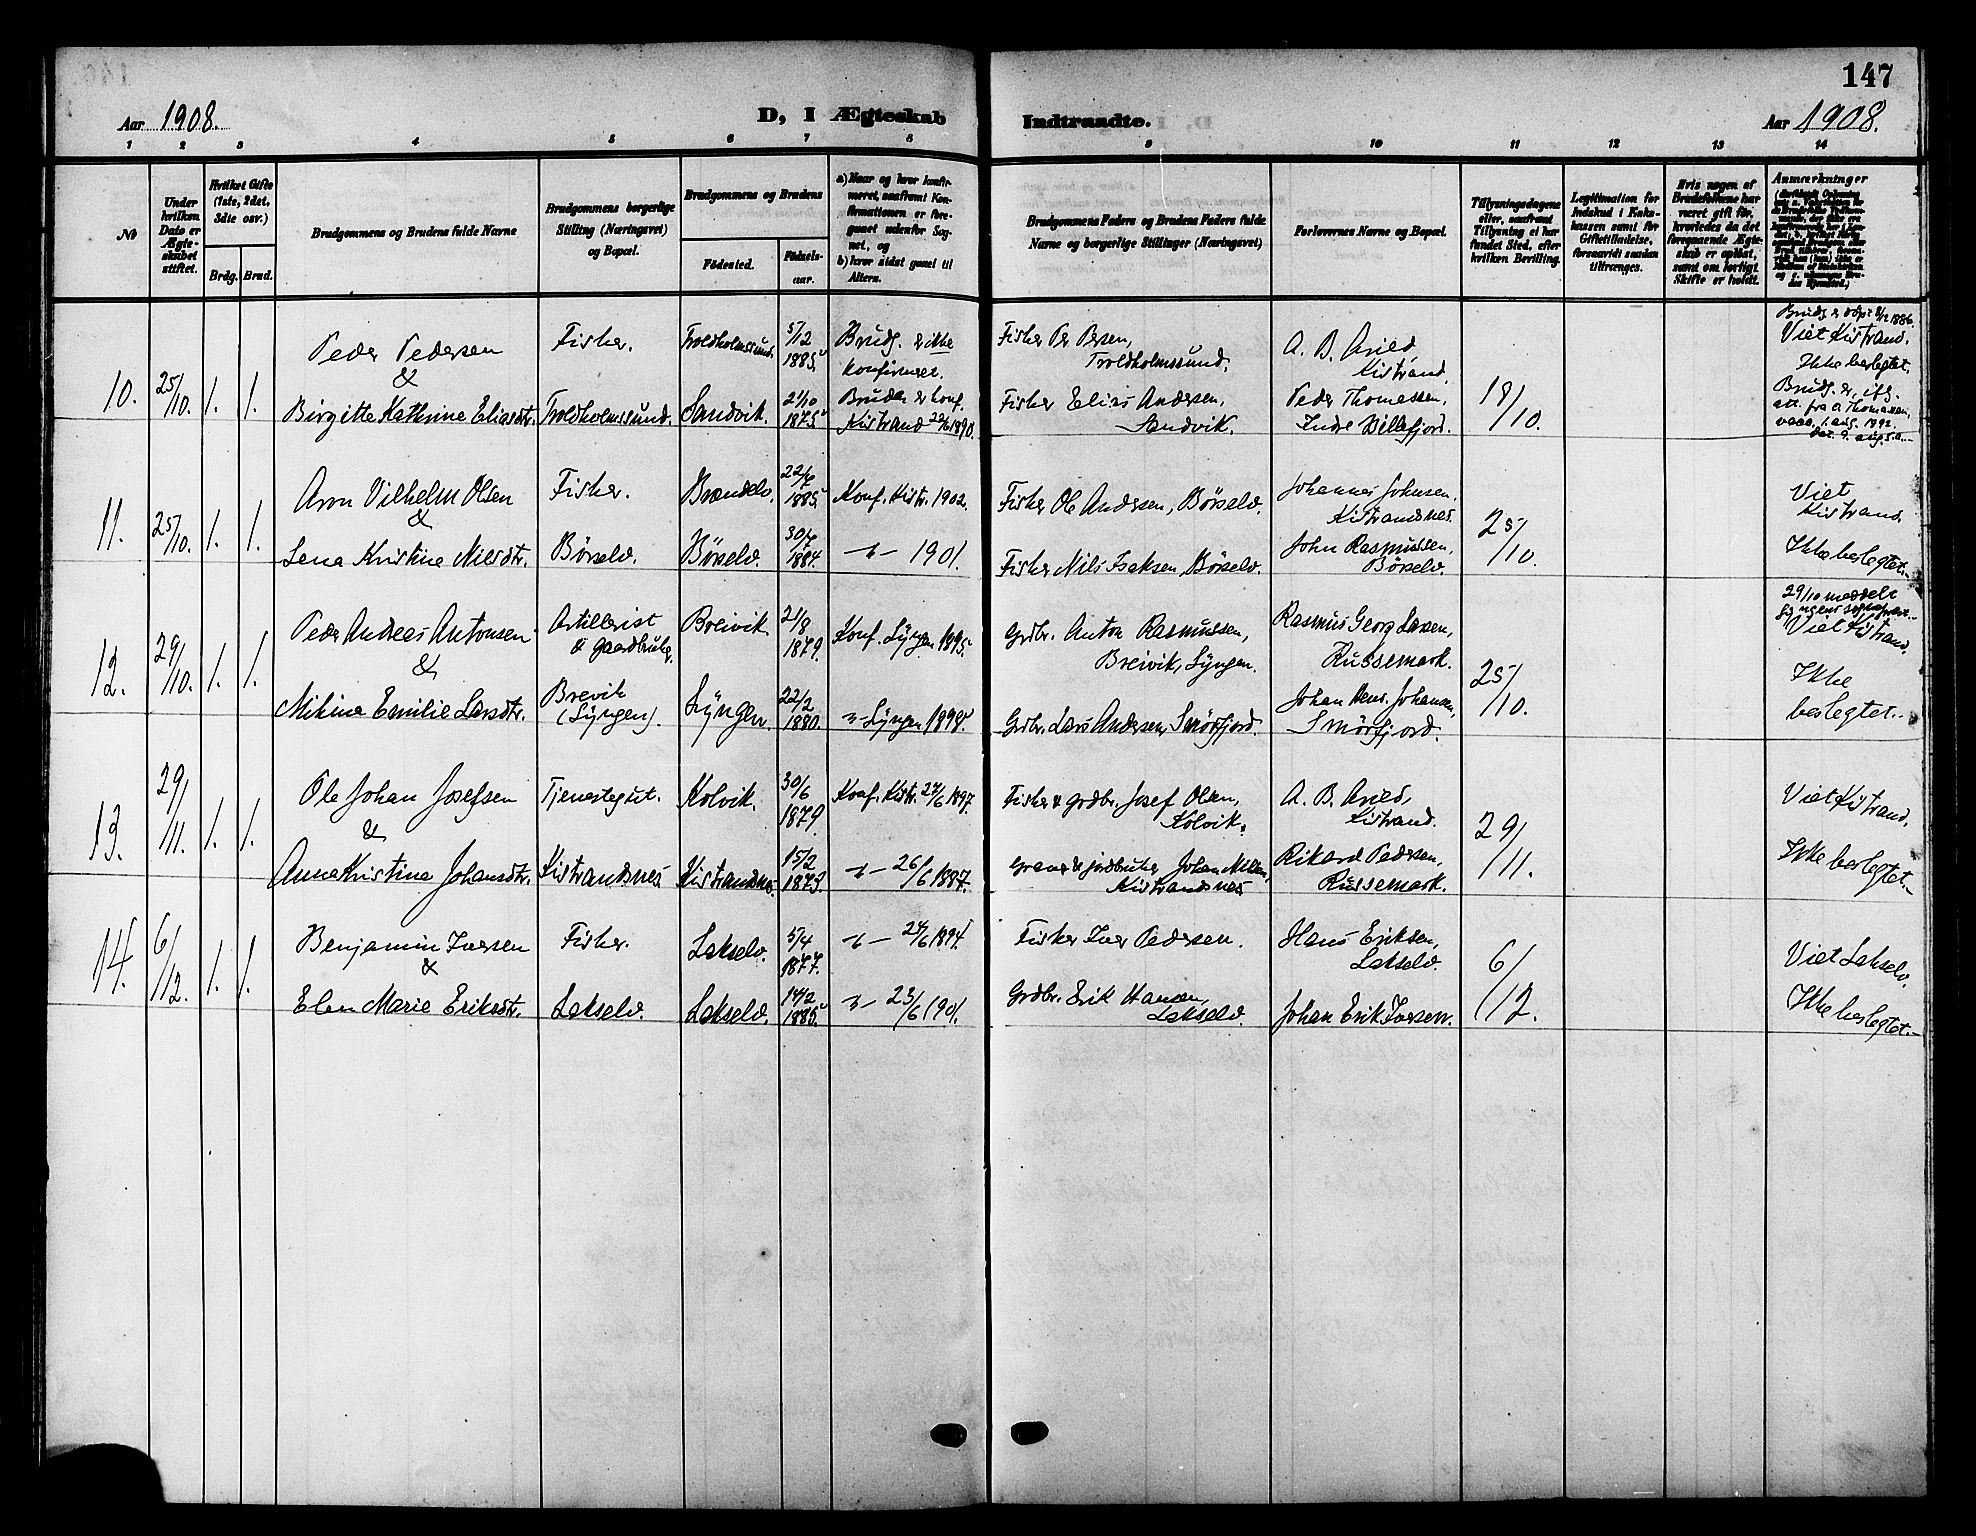 147
Aar 1908.
D, I Ægteskab
Indtraadte.
Aar 1908.
1 2 3 4 5 6 7 8 9 10 11 12 13 14
№
Under hvilken Dato er Ægteskabet stiftet.
Hvilket Gifte (1ste, 2det, 3die osv.)
Brdg. Brud.
Brudgommens og Brudens fulde Navne
Brudgommens borgerlige Stilling (Næringsvei) og Bopæl.
Brudgommens og Brudens
Födested.
Födselsaar.
a) Naar og hvor konfirmeret, saafremt Konfirmationen er foregaaet udenfor Sognet, og
b) hvor sidst gaaet til Alters.
Brudgommens Faders og Brudens Faders fulde Navne og borgerlige Stillinger (Næringsvei)
Forlovernes Navne og Bopæl.
Tillysningsdagene eller, saafremt Tillysning ei har fundet Sted, efter hvilken Bevilling.
Legitimation for Indskud i Enkekassen samt for Giftetilladelse, forsaavidt saadan tiltrænges.
Hvis nogen af Brudefolkene har været gift för, hvorledes da det foregaaende Ægteskab er oplöst, samt om lovligt Skifte er holdt.
Anmærkninger
10. 25/10. 1. 1.
Peder Pedersen
&
Birgitte Kathrine Eliasdtr.
Fisker.
Troldholmssund.
Troldholmssund.
Sandvik.
5/12 1885
21/10 1875
Brudg. er ikke
konfirmeret.
Bruden er konf.
Kistrand 22/6 1890.
Fisker Per Persen,
Troldholmssund.
Fisker Elias Andersen,
Sandvik.
A. B. Arild
Kistrand.
Peder Thomassen,
Indre Billefjord.
18/10.
Viet Kistrand.
Ikke beslegtet.
Brudg. er, ifg.
att. fra O. Thomassen,
11. 25/10. 1. 1.
Aron Vilhelm Olsen
&
Lena Kristine Nilsdtr.
Fisker.
Börselv.
Brendelv.
Börselv.
22/7 1885
30/7 1884.
Konf. Kistr. 1902.
-"- 1901.
Fisker Ole Andersen, Börselv.
Fisker Nils Isaksen, Börselv.
Johannes Johnsen,
Kistrandsnes.
John Rasmussen,
Börselv.
25/10.
Viet
Kistrand.
Ikke beslegtet.
12. 29/10. 1. 1.
Peder Andreas Antonsen
&
Mikine Emilie Larsdtr.
Artillerist
& gaardbruker
Breivik
(Lyngen).
Breivik.
Lyngen.
21/8 1879.
22/2 1880.
Konf. Lyngen 1895.
-"- Lyngen 1898.
Grdbr. Anton Rasmussen,
Breivik, Lyngen.
Grdbr. Lars Andersen, Smörfjord.
Rasmus Georg Larsen,
Russemark.
Johan Hens. Johansen,
Smörfjord.
25/10.
29/10 meddelt
Viet Kistrand.
Ikke
beslegtet.
13. 29/11. 1. 1.
Ole Johan Josefsen
&
Anna Kristina Johansdtr.
Tjenestegut.
Kistrandsnes
Kolvik.
Kistrandnes.
30/6 1879.
15/2 1873.
Konf. Kistr. 27/6 1897
-"- 26/6 1887.
Fisker & grdbr. Josef Olsen,
Kolvik.
Graver & jordbruker Johan Nilsen,
Kistrandsnes
A. B. Arild,
Kistrand.
Rikard Pedersen,
Russemark.
29/11.
Viet Kistrand.
Ikke beslegtet.
14. 6/12. 1. 1.
Benjamin Iversen
&
Elen Marie Eriksdtr.
Fisker.
Lakselv.
Lakselv.
Lakselv.
5/4 1877.
14/2 1885.
-"- 24/6 1894.
-"- 23/6 1901.
Fisker Iver Pedersen.
Grdbr. Erik Hansen,
Lakselv.
Hans Eriksen,
Lakselv.
Johan Erik Iversen.
6/12.
Viet Lakselv.
Ikke beslegtet.